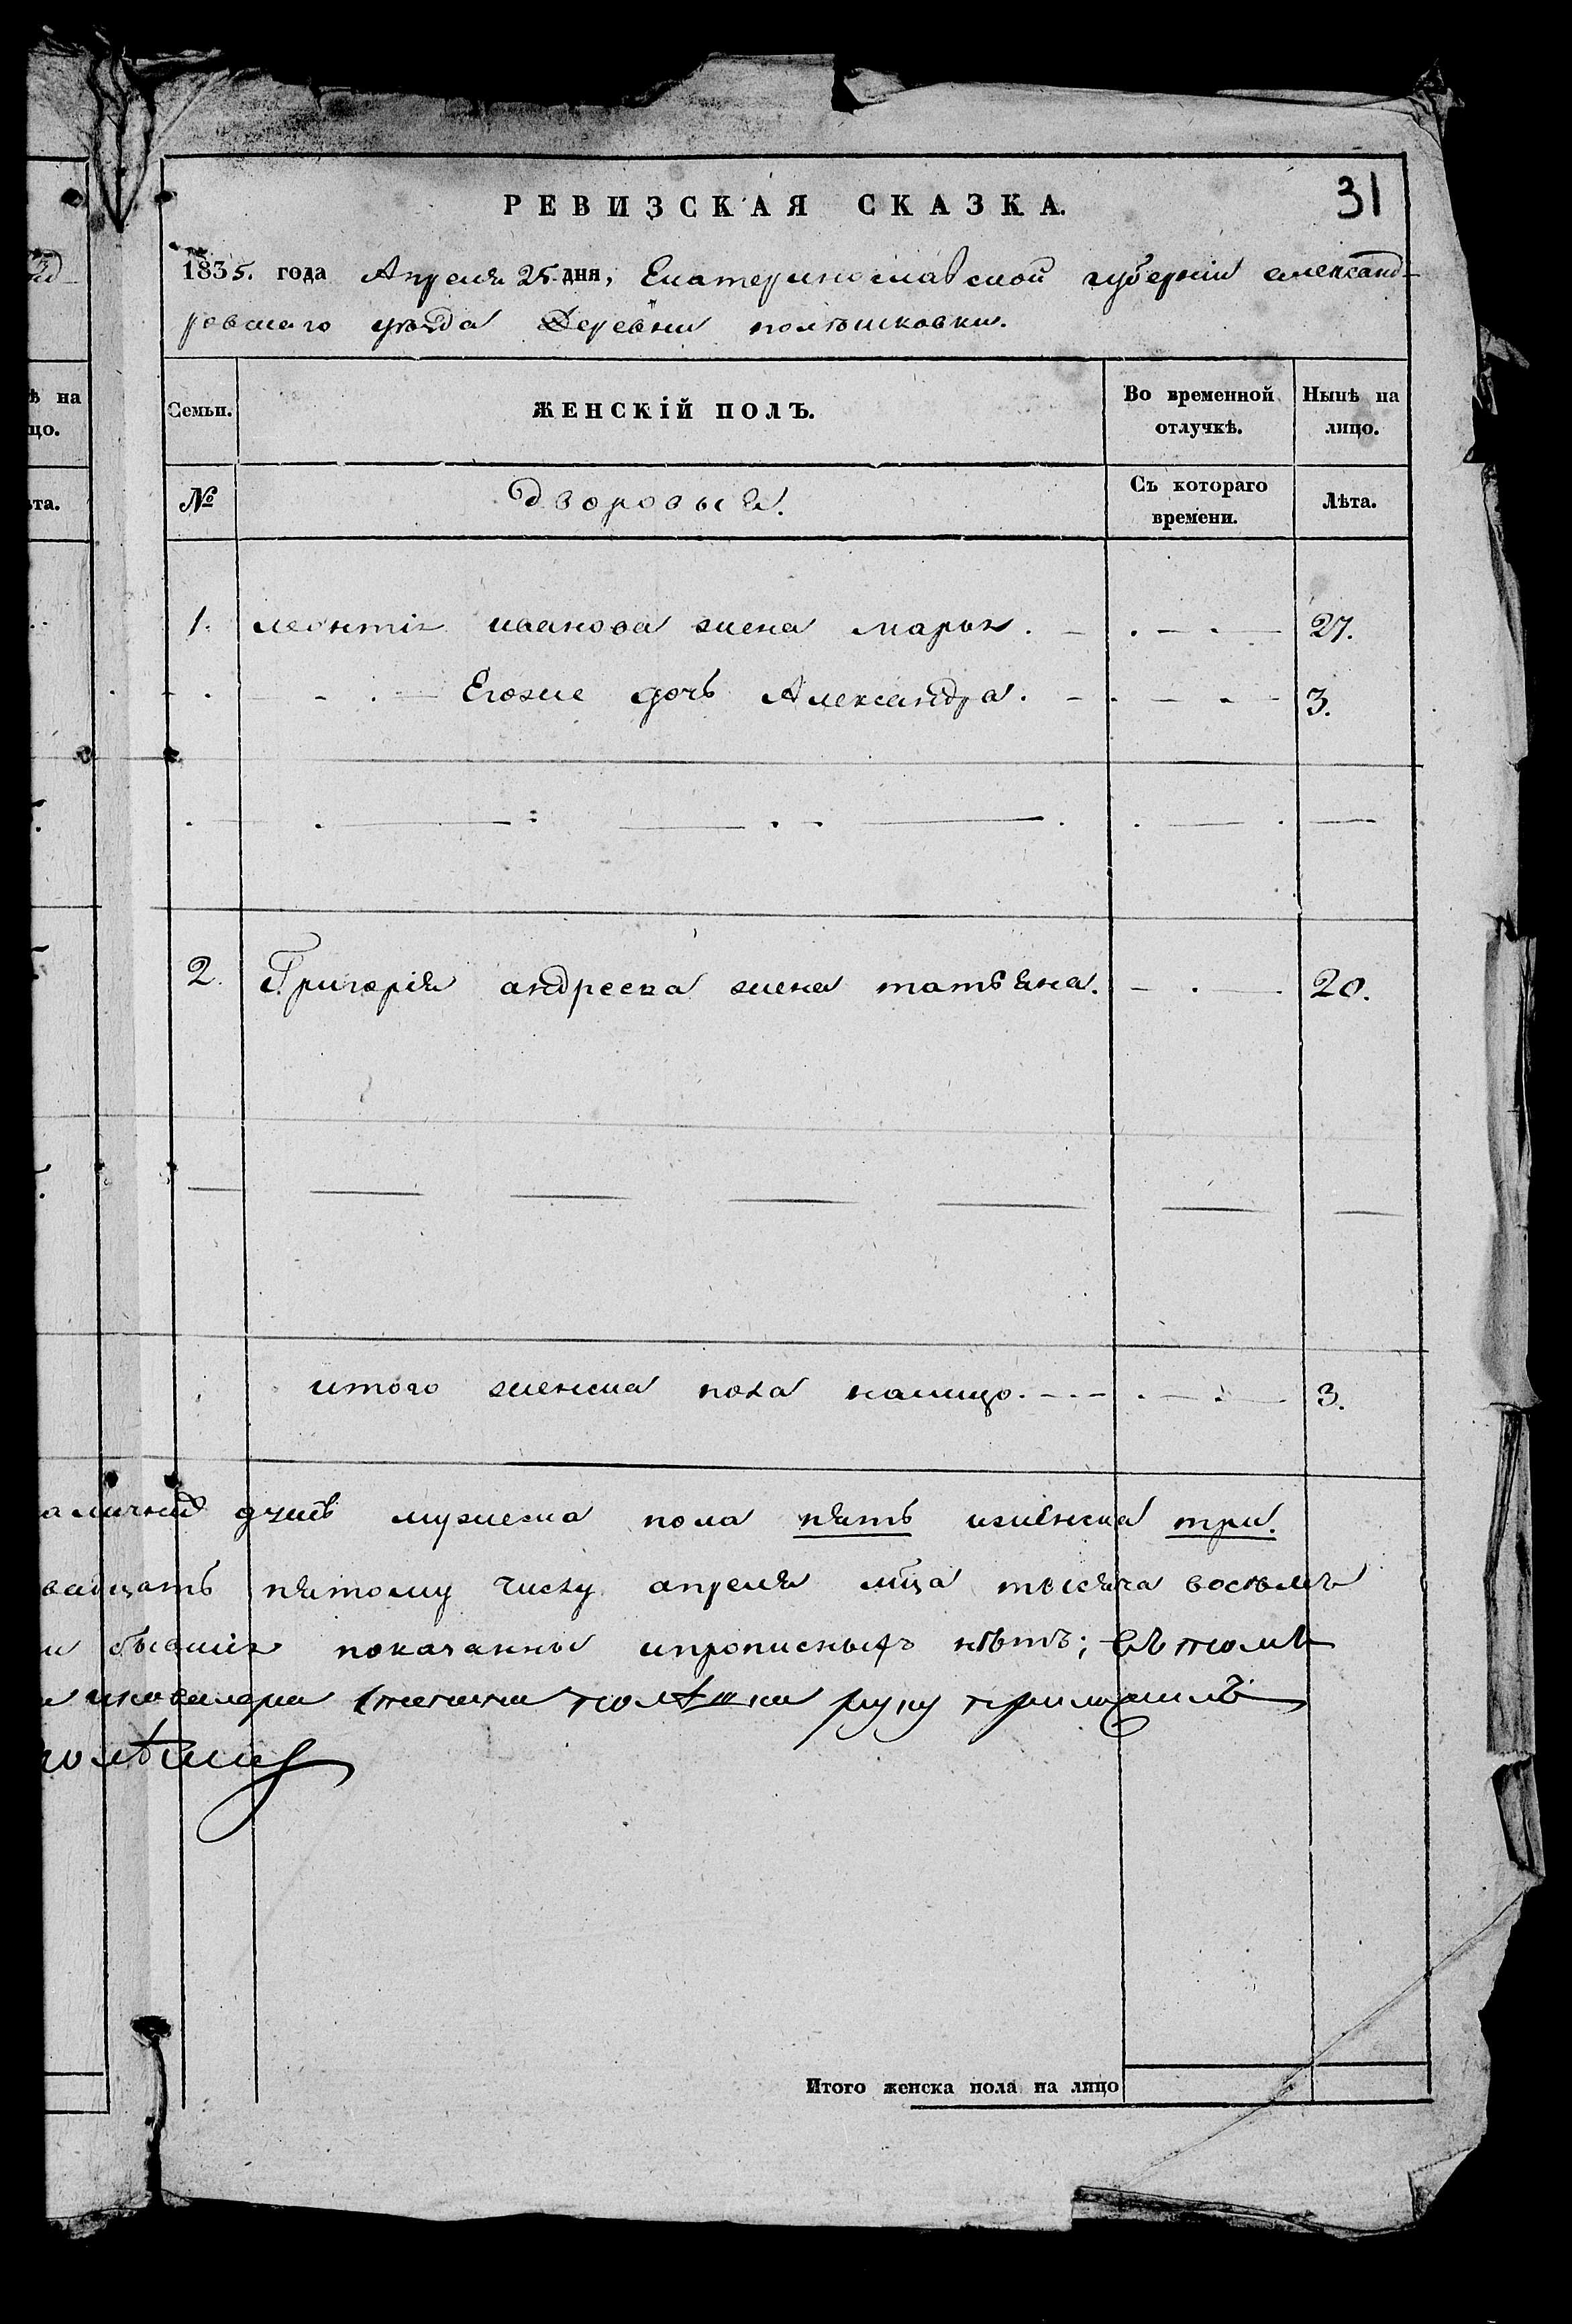 31
РЕВИЗСКАЯ СКАЗКА.
1835. года Апреля 25 дня, Екатеринославской губерніи александ-
ровскаго уѣзда Деревни полѣшковки.
ѣ на
цо.
Семьи.
ЖЕНСКІЙ ПОЛЪ.
Во временной
отлучкѣ.
Нынѣ на
лицо.
ѣта.
№
Дворовыя.
Съ котораго
времени.
Лѣта.
1. леонтія иванова жена марья. 27.
Егоже дочь Александра. 3.
2. Григорія андреева жена татьяна. 20.
итого женска пола налицо. 3.
аличныхъ душъ мужеска пола пять иженска три.
вадцать пятому числу апреля мца тысяча восемь
и бывшіх показанны ипрописныхъ нѣтъ; въ томъ
полѣшки руку приложилъ
Итого женска пола на лицо